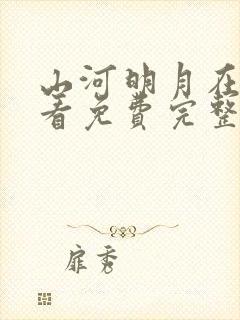 山河明月在
着免费完整
扉秀